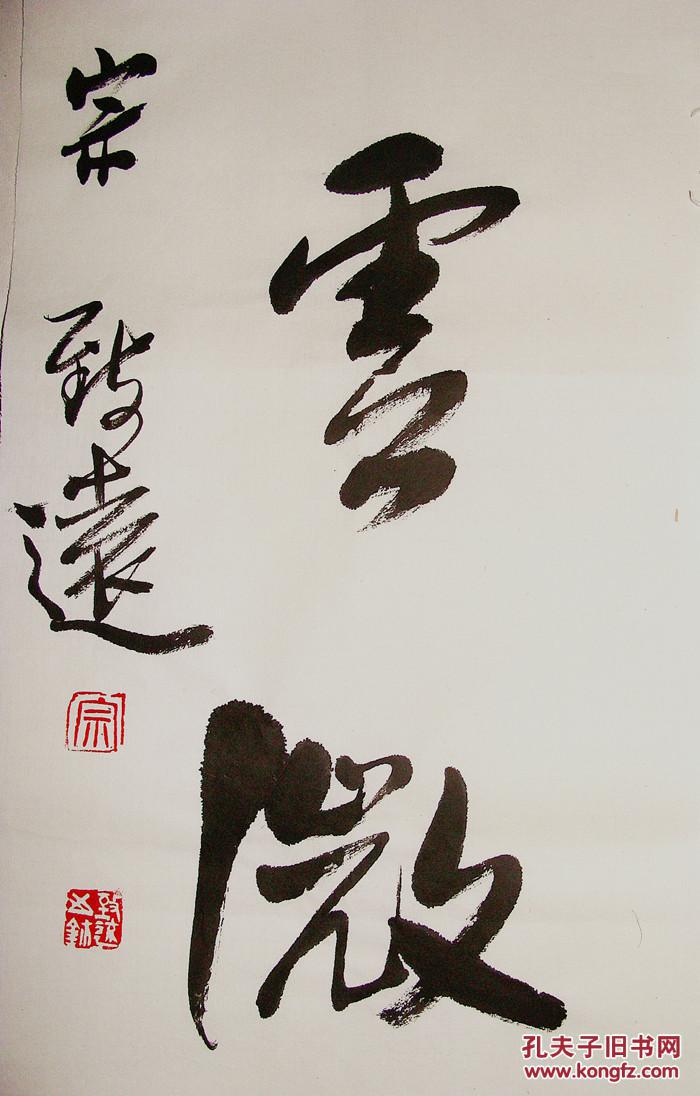 雲微
宗致遠
宗
致遠
孔夫子旧书网
www.kongfz.com